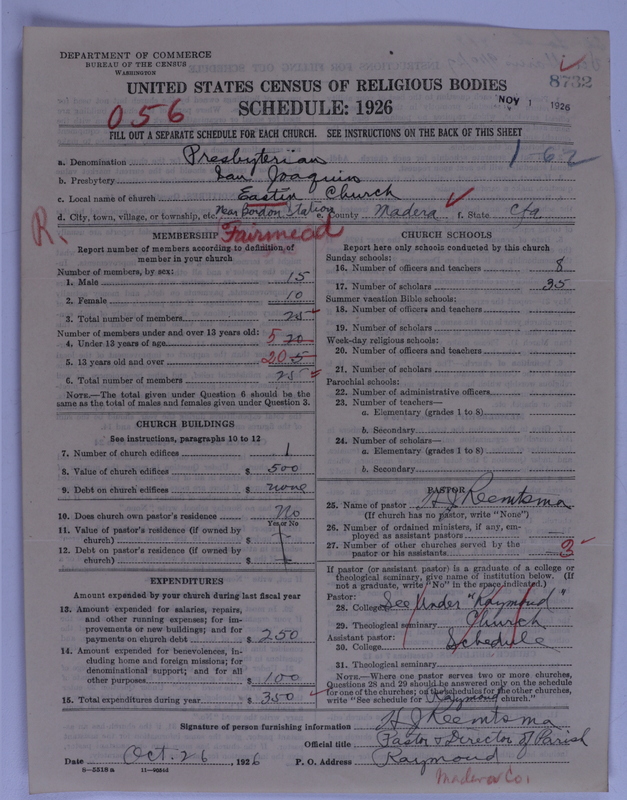 DEPARTMENT OF COMMERCE
BUREAU OF THE CENSUS
WASHINGTON
8732
UNITED STATES CENSUS OF RELIGIOUS BODIES
SCHEDULE: 1926
NOV 1 1926
056
FILL OUT A SEPARATE SCHEDULE FOR EACH CHURCH. SEE INSTRUCTIONS ON THE BACK OF THIS SHEET
1 62
a. Denomination Presbyterian
b. Presbytery San Joaquin
c. Local name of church Eastin Church
d. City, town, village, or township, etc. Near Bordon Station e. County Madera f. State Cfa
R. Fairmead
MEMBERSHIP
Report number of members according to definition of
member in your church
Number of members, by sex:
1. Male 15
2. Female 10
3. Total number of members 25
Number of members under and over 13 years old:
4. Under 13 years of age 5 20
5. 13 years old and over 20 5
6. Total number of members 25
NOTE.—The total given under Question 6 should be
same as the total of males and females given under Question 3.
CHURCH BUILDINGS
See instructions, paragraphs 10 to 12
7. Number of church edifices 1
8. Value of church edifices $ 500
9. Debt on church edifices $ none
10. Does church own pastor's residence? No
Yes or No
11. Value of pastor's residence (if owned by
church) $
12. Debt on pastor's residence (if owned by
church) $
EXPENDITURES
Amount expended by your church during last fiscal year
13. Amount expended for salaries, repairs,
and other running expenses; for im-
provements or new buildings; and for
payments on church debt $ 250
14. Amount expended for benevolences, in-
cluding home and foreign missions; for
denominational support; and for all
other purposes $ 100
15. Total expenditures during year $ 350
CHURCH SCHOOLS
Report here only schools conducted by this church
Sunday schools:
16. Number of officers and teachers 8
17. Number of scholars 35
Summer vacation Bible schools:
18. Number of officers and teachers
19. Number of scholars
Week-day religious schools:
20. Number of officers and teachers
21. Number of scholars
Parochial schools:
22. Number of administrative officers
23. Number of teachers—
a. Elementary (grades 1 to 8)
b. Secondary
24. Number of scholars—
a. Elementary (grades 1 to 8)
b. Secondary
PASTOR
25. Name of pastor H J Reemtsma
(If church has no pastor, write "None")
26. Number of ordained ministers, if any, em-
ployed as assistant pastors
27. Number of other churches served by the
pastor or his assistants 3
If pastor (or assistant pastor) is a graduate of a college or
theological seminary, give name of institution below. (If
not a graduate, write "No" in the space indicated.)
Pastor:
28. College See Under "Raymond"
29. Theological seminary Church
Assistant pastor:
30. College Schedule
31. Theological seminary
NOTE.—Where one pastor serves two or more churches,
Questions 28 and 29 should be answered only on the schedule
for one of the churches; on the schedules for the other churches,
write "See schedule for Raymond church."
Signature of person furnishing information H J Reemtsma
Official title Pastor & Director of Parish
Date Oct. 26, 1926 P. O. Address Raymond
8—5518 a
Madera Co.